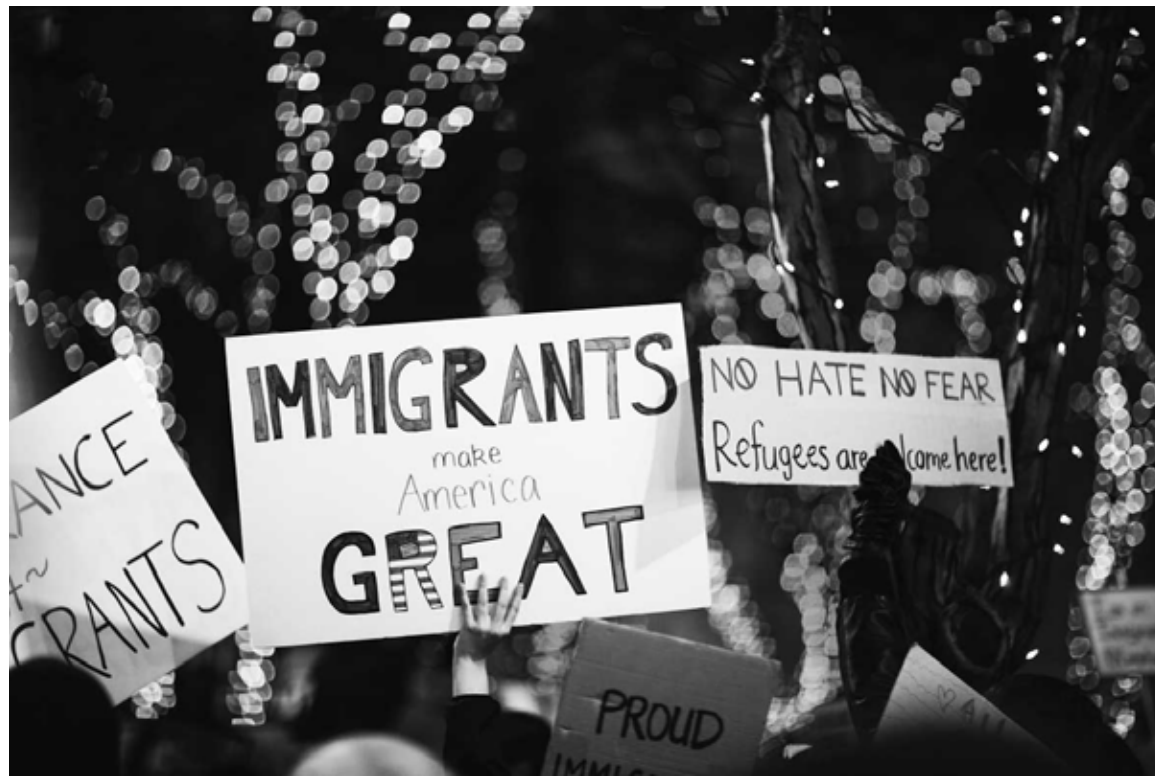 ANCE
GRANTS
IMMIGRANTS
make
America
GREAT
NO HATE NO FEAR
Refugees are lcome here!
PROUD
♡ 4 ALL